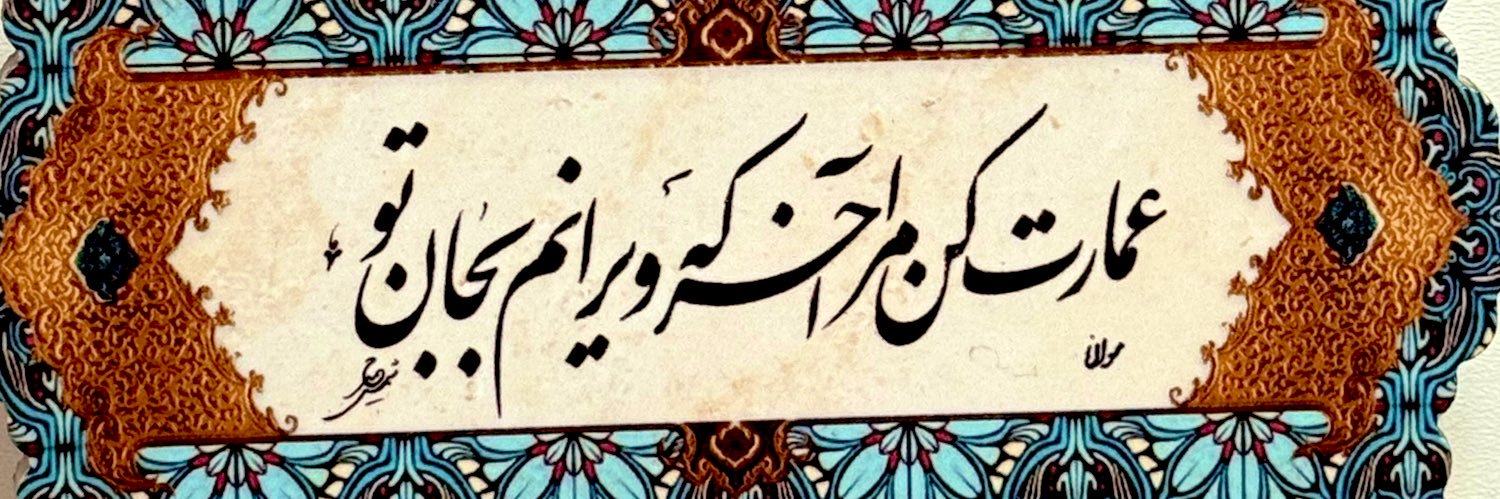 عمارت کن مرا آخر که ویرانم بجان تو
مولانا